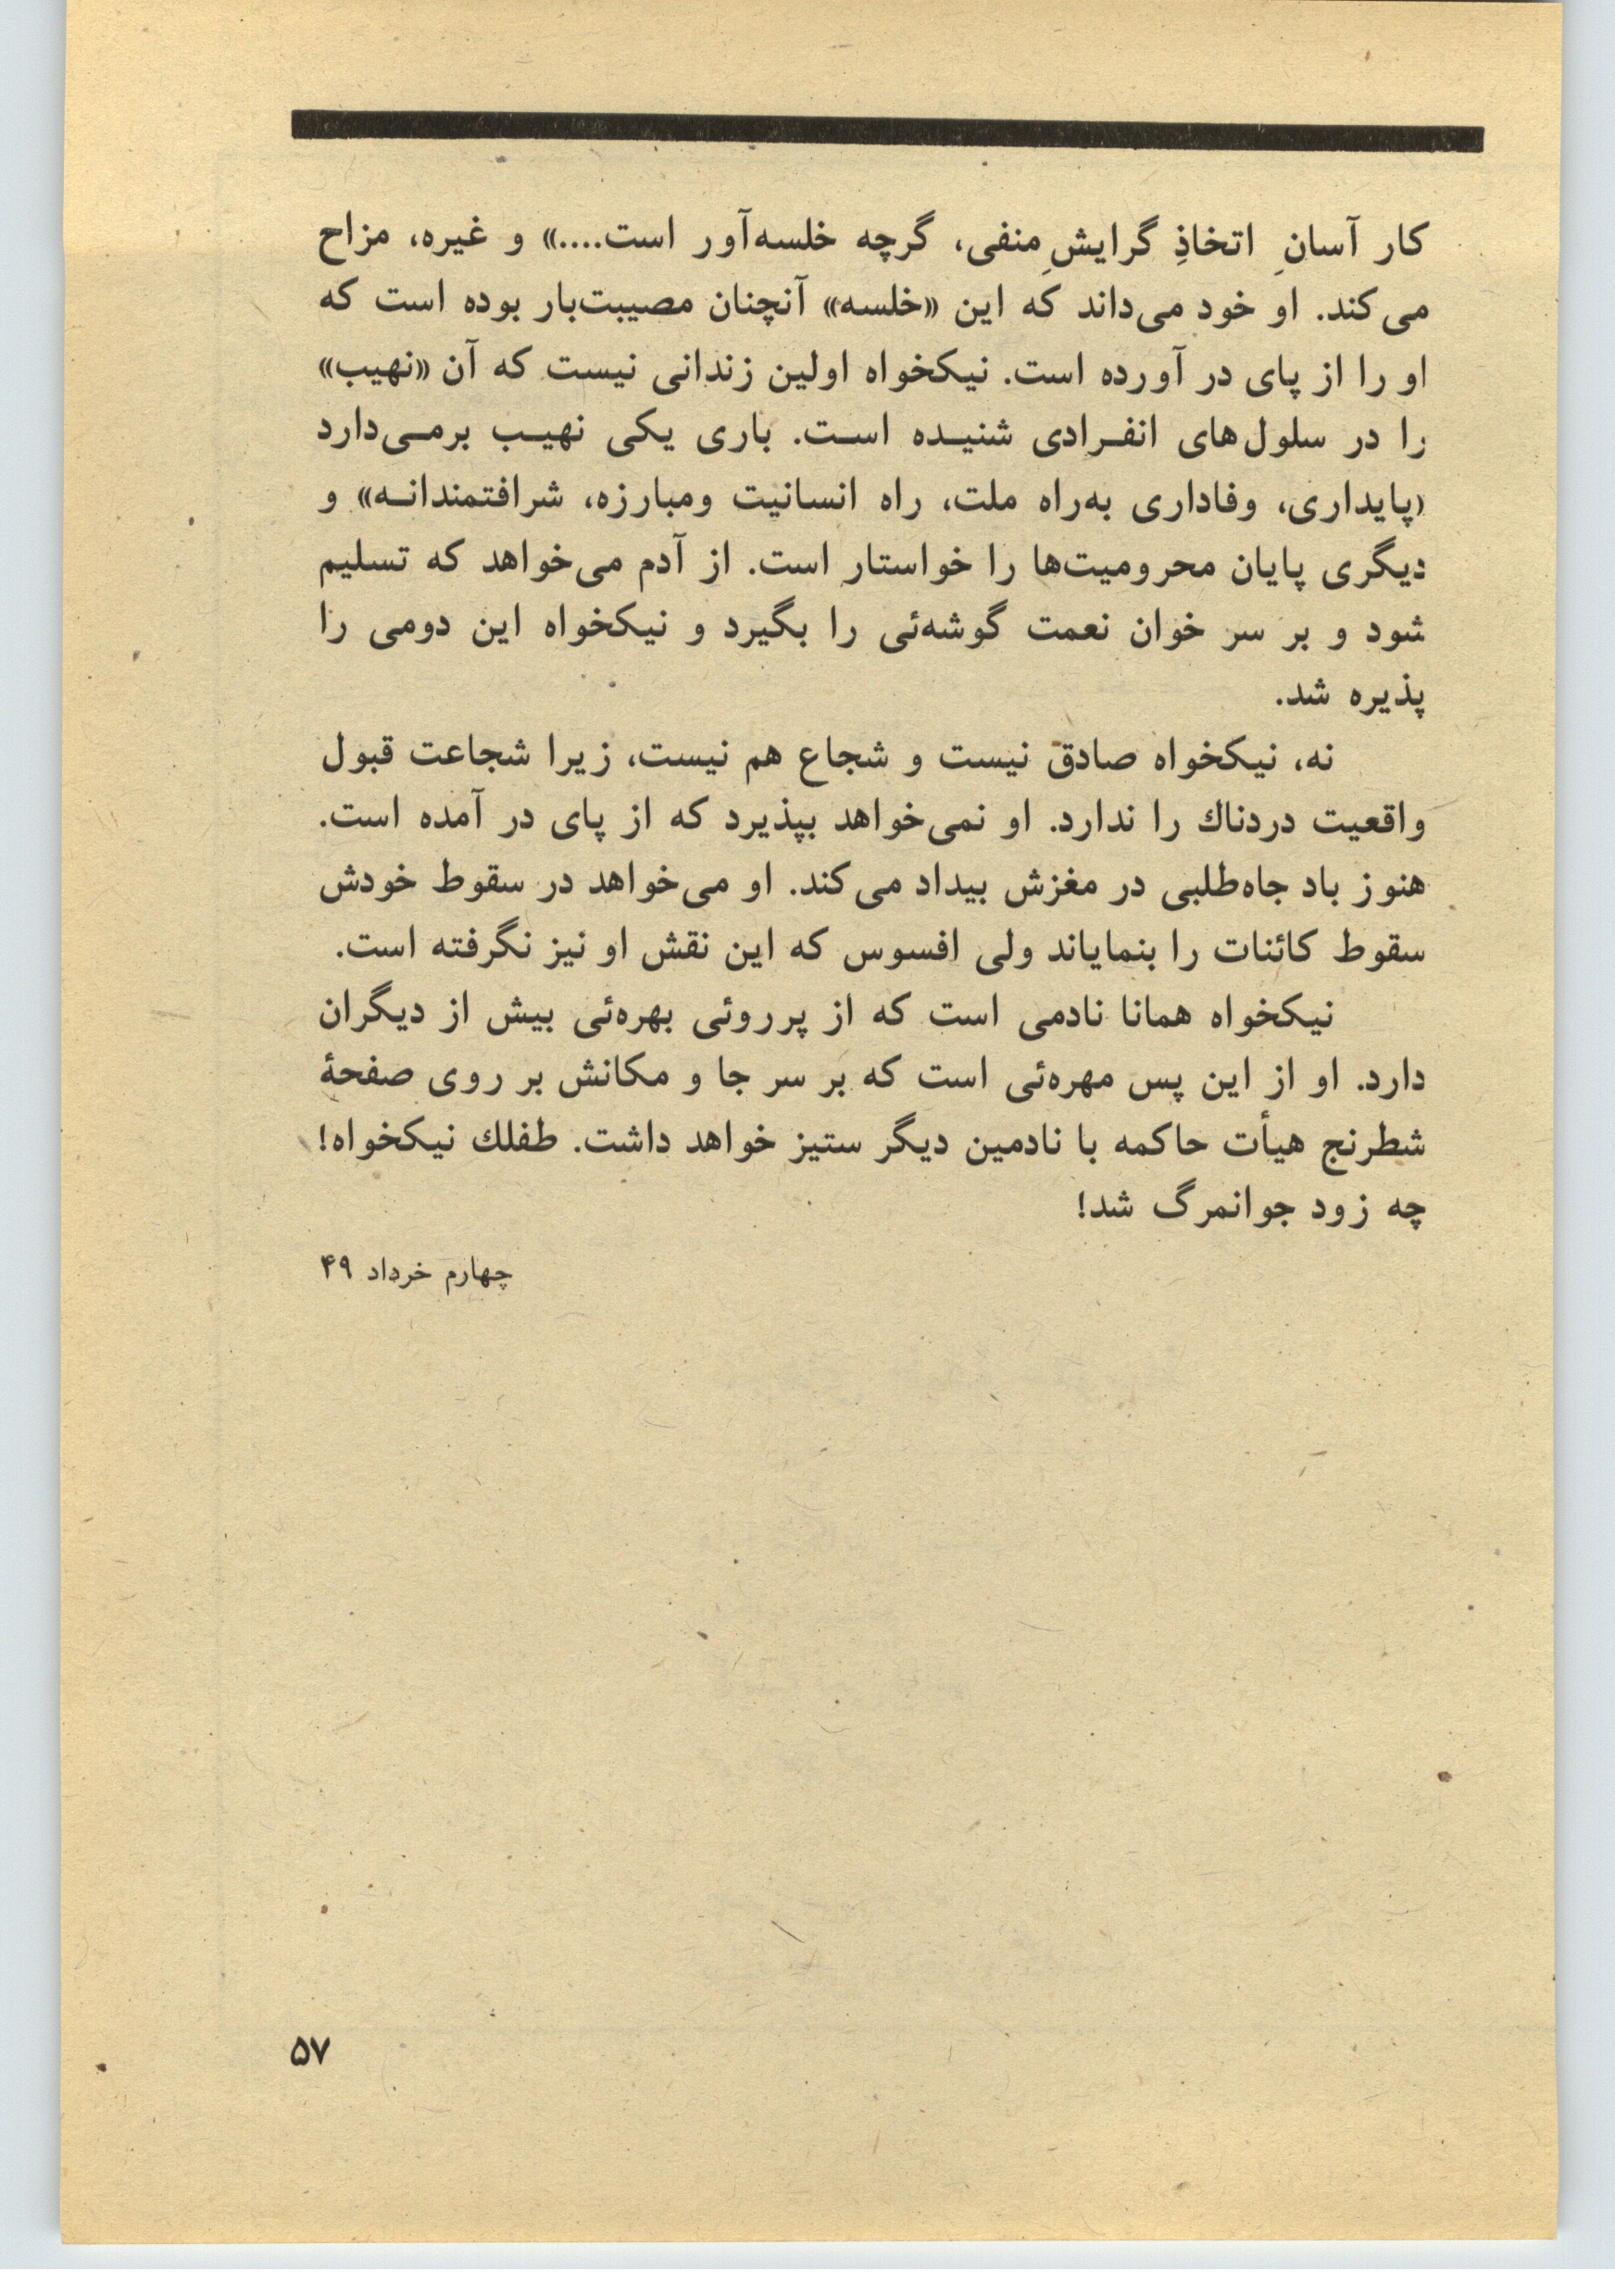 کار آسانِ اتخاذِ گرایشِ منفی، گرچه خلسه‌آور است....» و غیره، مزاح
می‌کند. او خود می‌داند که این «خلسه» آنچنان مصیبت‌بار بوده است که
او را از پای در آورده است. نیکخواه اولین زندانی نیست که آن «نهیب»
را در سلول‌های انفـرادی شنیـده اسـت. باری یکی نهیـب برمـی‌دارد
«پایداری، وفاداری به‌راه ملت، راه انسانیت ومبارزه، شرافتمندانـه» و
دیگری پایان محرومیت‌ها را خواستار است. از آدم می‌خواهد که تسلیم
شود و بر سر خوان نعمت گوشه‌ئی را بگیرد و نیکخواه این دومی را
پذیره شد.
نه، نیکخواه صادق نیست و شجاع هم نیست، زیرا شجاعت قبول
واقعیت دردناك را ندارد. او نمی‌خواهد بپذیرد که از پای در آمده است.
هنوز باد جاه‌طلبی در مغزش بیداد می‌کند. او می‌خواهد در سقوط خودش
سقوط کائنات را بنمایاند ولی افسوس که این نقش او نیز نگرفته است.
نیکخواه همانا نادمی است که از پرروئی بهره‌ئی بیش از دیگران
دارد. او از این پس مهره‌ئی است که بر سر جا و مکانش بر روی صفحهٔ
شطرنج هیأت حاکمه با نادمین دیگر ستیز خواهد داشت. طفلك نیکخواه!
چه زود جوانمرگ شد!
چهارم خرداد ۴۹
۵۷